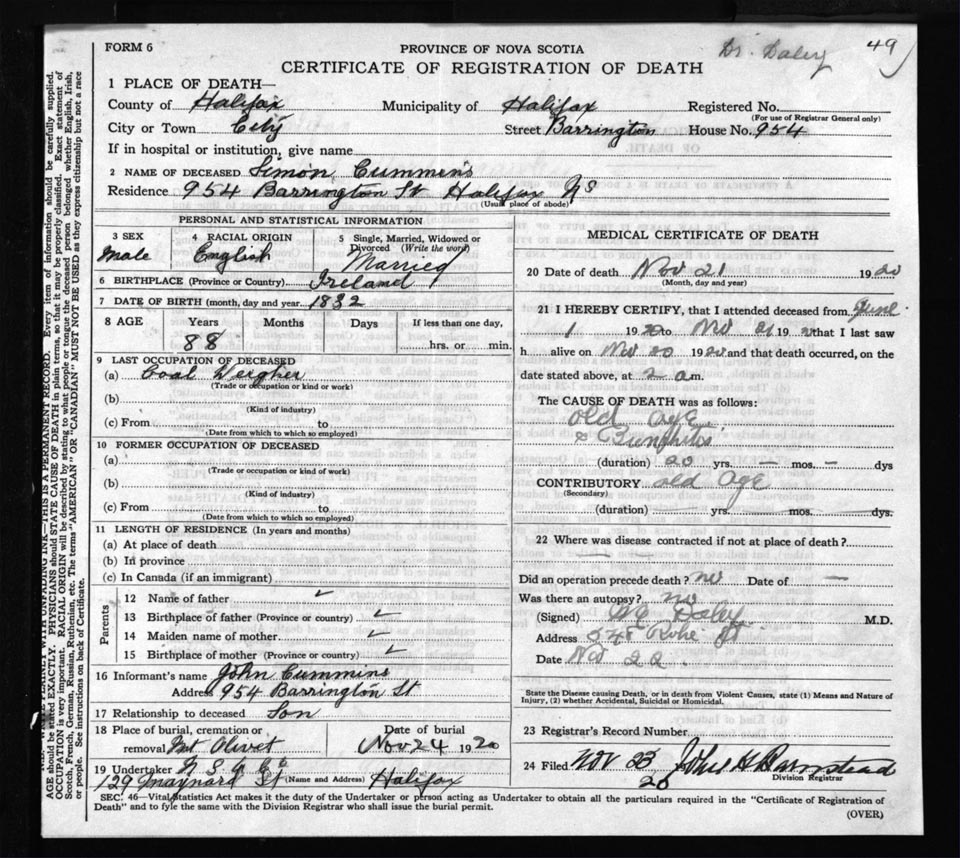 FORM 6
PROVINCE OF NOVA SCOTIA
Dr. Daley 49
CERTIFICATE OF REGISTRATION OF DEATH
1 PLACE OF DEATH—
County of Halifax Municipality of Halifax Registered No.
(For use of Registrar General only)
City or Town City Street Barrington House No. 954
If in hospital or institution, give name
2 NAME OF DECEASED Simon Cummins
Residence 954 Barrington St Halifax NS
(Usual place of abode)
PERSONAL AND STATISTICAL INFORMATION
3 SEX
Male
4 RACIAL ORIGIN
English
5 Single, Married, Widowed or Divorced (Write the word)
Married
6 BIRTHPLACE (Province or Country) Ireland
7 DATE OF BIRTH (month, day and year) 1832
8 AGE Years Months Days If less than one day,
88 hrs. or min.
9 LAST OCCUPATION OF DECEASED
(a) Coal Weigher
(Trade or occupation or kind or work)
(b)
(Kind of industry)
(c) From to
(Date from which to which so employed)
10 FORMER OCCUPATION OF DECEASED
(a)
(Trade or occupation or kind of work)
(b)
(Kind of industry)
(c) From to
(Date from which to which so employed)
11 LENGTH OF RESIDENCE (In years and months)
(a) At place of death
(b) In province
(c) In Canada (if an immigrant)
Parents
12 Name of father ✓
13 Birthplace of father (Province or country) ✓
14 Maiden name of mother ✓
15 Birthplace of mother (Province or country) ✓
16 Informant's name John Cummins
Address 954 Barrington St
17 Relationship to deceased Son
18 Place of burial, cremation or removal Mt Olivet
Date of burial
Nov 24 1920
19 Undertaker N S U Co
129 Maynard St (Name and Address) Halifax
MEDICAL CERTIFICATE OF DEATH
20 Date of death Nov 21 1920
(Month, day and year)
21 I HEREBY CERTIFY, that I attended deceased from June
1 1920 to Nov 21 1920 that I last saw
h alive on Nov 20 1920 and that death occurred, on the
date stated above, at 2 a m.
The CAUSE OF DEATH was as follows:
Old Age
(duration) 20 yrs. — mos. — dys
CONTRIBUTORY Old Age
(Secondary)
(duration) — yrs. — mos. — dys.
22 Where was disease contracted if not at place of death?
Did an operation precede death? no Date of —
Was there an autopsy? no
(Signed) Daley M.D.
Address St
Date Nov 22
State the Disease causing Death, or in death from Violent Causes, state (1) Means and Nature of
Injury, (2) whether Accidental, Suicidal or Homicidal.
23 Registrar's Record Number
24 Filed Nov 23 John H Barnstead
20 Division Registrar
SEC. 46—Vital Statistics Act makes it the duty of the Undertaker or person acting as Undertaker to obtain all the particulars required in the "Certificate of Registration of
Death" and to fyle the same with the Division Registrar who shall issue the burial permit.
(OVER)
PLAINLY WITH UNFADING INK—THIS IS A PERMANENT RECORD. Every item of information should be carefully supplied.
AGE should be stated EXACTLY. PHYSICIANS should STATE CAUSE OF DEATH in plain terms, so that it may be properly classified. Exact statement of
OCCUPATION is very important. RACIAL ORIGIN will be described by stating to what people or tongue the deceased person belonged whether English, Irish,
Scotch, French, German, Russian, Ruthenian, etc. The terms "AMERICAN" OR "CANADIAN" MUST NOT BE USED as they express citizenship but not a race
or people. See instructions on back of Certificate.